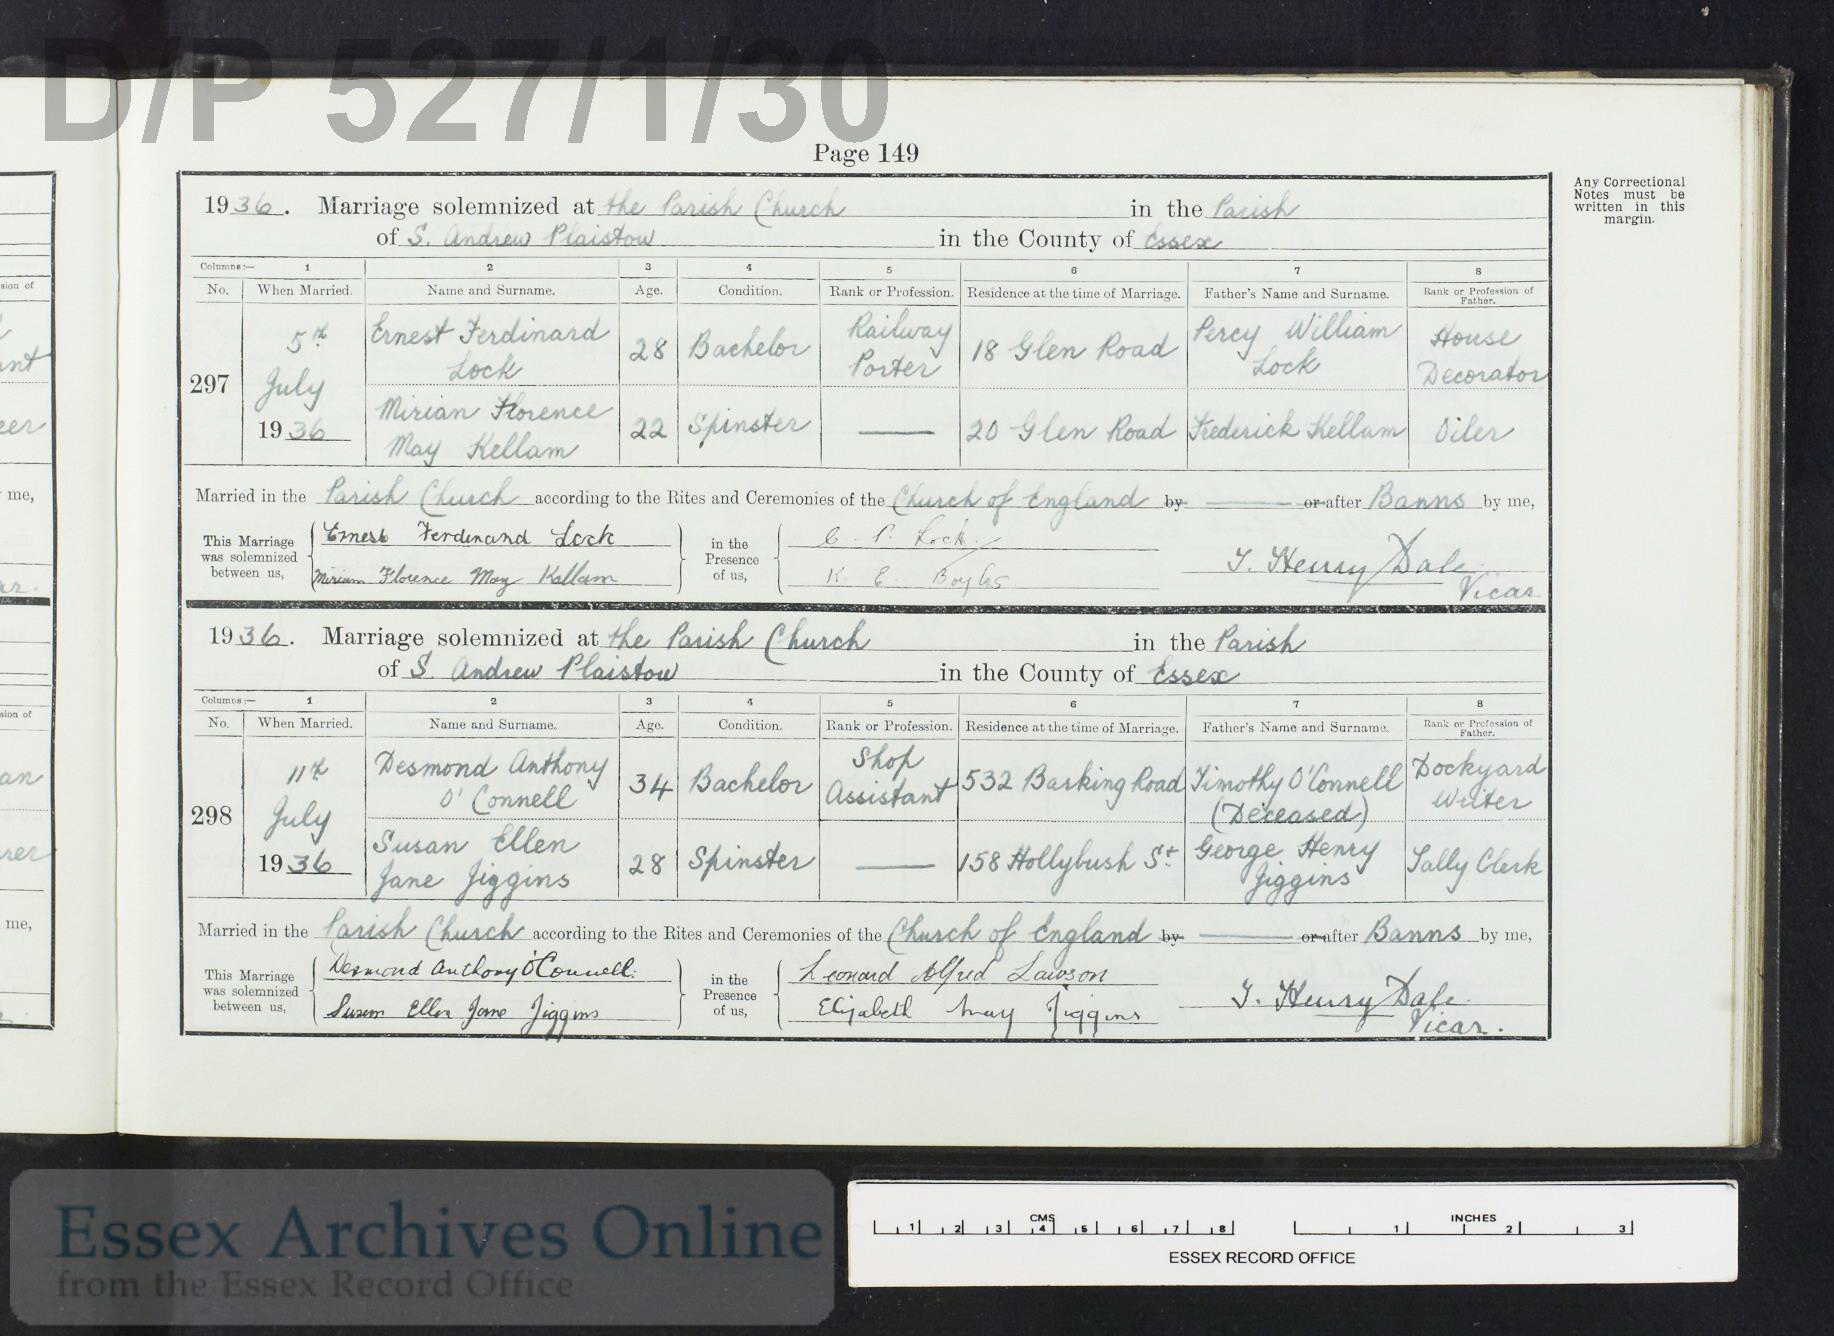 D/P 527/1/30
Page 149
Any Correctional
Notes must be
written in this
margin.
1936. Marriage solemnized at the Parish Church in the Parish
of S. Andrew Plaistow in the County of Essex
Columns:— 1 2 3 4 5 6 7 8
No. When Married. Name and Surname. Age. Condition. Rank or Profession. Residence at the time of Marriage. Father's Name and Surname. Rank or Profession of Father.
297 5th July 1936
Ernest Ferdinard Lock 28 Bachelor Railway Porter 18 Glen Road Percy William Lock House Decorator
Mirian Florence May Kellam 22 Spinster — 20 Glen Road Frederick Kellam Oiler
Married in the Parish Church according to the Rites and Ceremonies of the Church of England by — or after Banns by me,
This Marriage was solemnized between us,
Ernest Ferdinand Lock
Miriam Florence May Kallam
in the Presence of us,
C. P. Lock.
K. E. Boyles
T. Henry Dale
Vicar
1936. Marriage solemnized at the Parish Church in the Parish
of S. Andrew Plaistow in the County of Essex
Columns:— 1 2 3 4 5 6 7 8
No. When Married. Name and Surname. Age. Condition. Rank or Profession. Residence at the time of Marriage. Father's Name and Surname. Rank or Profession of Father.
298 11th July 1936
Desmond Anthony O'Connell 34 Bachelor Shop Assistant 532 Barking Road Timothy O'Connell (Deceased) Dockyard Writer
Susan Ellen Jane Jiggins 28 Spinster — 158 Hollybush St George Henry Jiggins Tally Clerk
Married in the Parish Church according to the Rites and Ceremonies of the Church of England by — or after Banns by me,
This Marriage was solemnized between us,
Desmond Anthony O'Connell.
Susan Ellen Jane Jiggins
in the Presence of us,
Leonard Alfred Lawson
Elizabeth May Jiggins
T. Henry Dale
Vicar.
Essex Archives Online
from the Essex Record Office
CMS
1 2 3 4 5 6 7 8
INCHES
1 2 3
ESSEX RECORD OFFICE